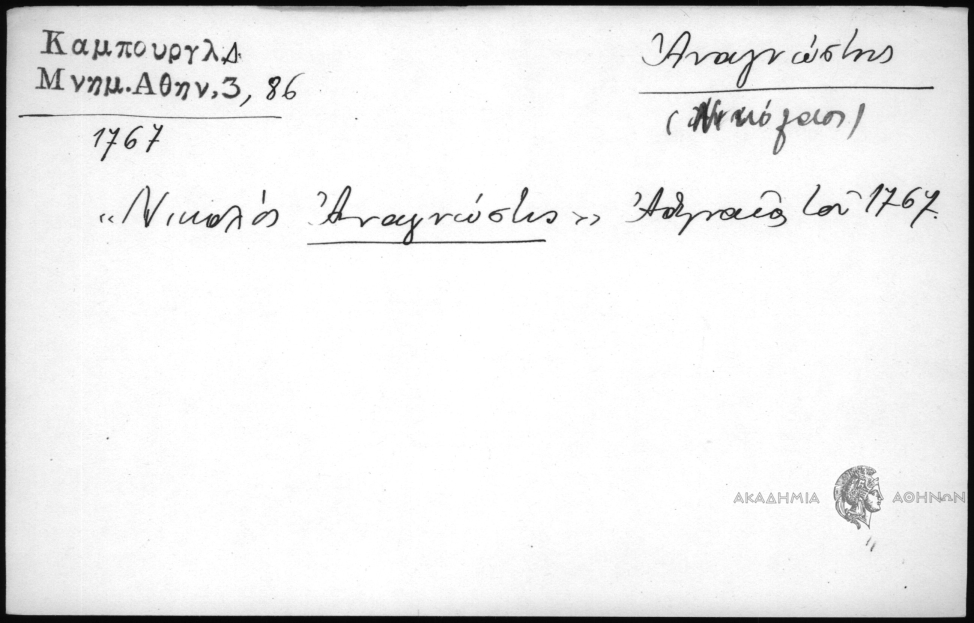 Καμπουργλ.Δ.
Μνημ.Αθην.3, 86
1767
Ἀναγνώστης
(Νικόλαος)
«Νικολός Ἀναγνώστης» Ἀθηναῖος τοῦ 1767.
ΑΚΑΔΗΜΙΑ ΑΘΗΝΩΝ